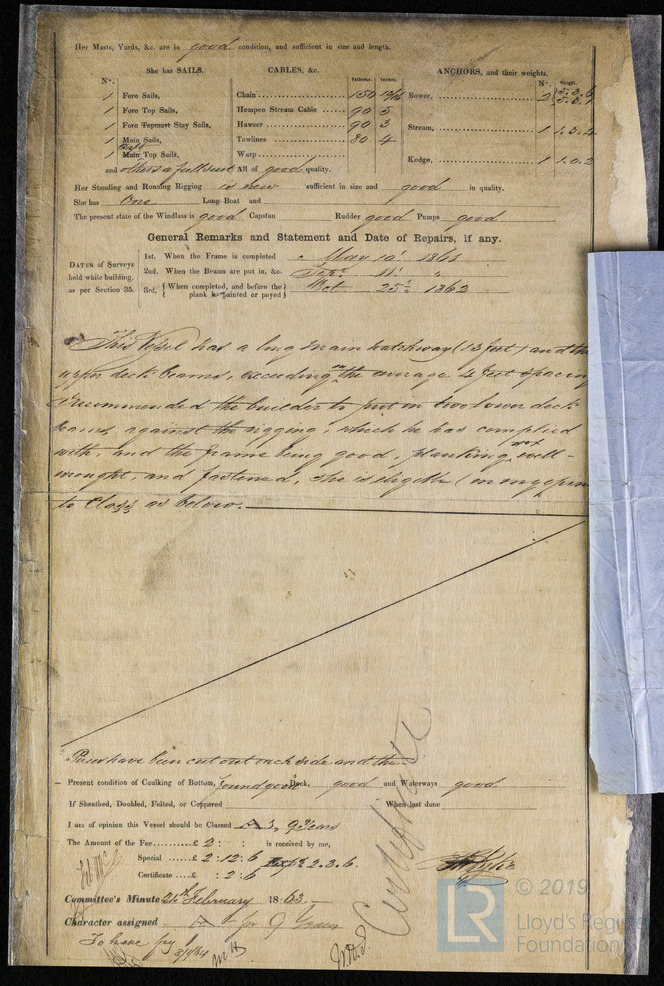 Her Masts, Yards, &c. are in good condition, and sufficient in size and length.
She has SAILS. CABLES, &c. ANCHORS, and their weights.
N°. Fathoms. Inches. N°. Weight.
1 Fore Sails, Chain 150 Bower, 2
1 Fore Top Sails, Hempen Stream Cable 90 5
1 Fore Topmast Stay Sails, Hawser 90 3 Stream, 1 1.3.4
1 Main Sails, Towlines 80 4
1 Main Top Sails, Warp Kedge, 1 1.0.2
and others a full suit All of good quality.
Her Standing and Running Rigging is new sufficient in size and good in quality.
She has One Long Boat and
The present state of the Windlass is good Capstan Rudder good Pumps good
General Remarks and Statement and Date of Repairs, if any.
DATES of Surveys held while building, as per Section 35.
1st. When the Frame is completed May 10' 1861
2nd. When the Beams are put in, &c. Sept. 11' "
3rd. {When completed, and before the plank is painted or payed} Oct 25th 1862
This Vessel has a long main hatchway (13 feet) and the
upper deck beams, exceeding on the average 4 feet spacing
I recommended the builder to put in two lower deck
beams, against the rigging, which he has complied
with, and the frame being good, planking, well-
wrought, and fastened, she is eligible (in my opin
to Class as below.
have been cut out each side and the
Present condition of Caulking of Bottom, found good Deck, good and Waterways good
If Sheathed, Doubled, Felted, or Coppered When last done
I am of opinion this Vessel should be Classed A 1, 9 Years
The Amount of the Fee £ 2 : : is received by me,
Special £ 2 : 12 : 6 Exp £ 2.3.6.
Certificate £ : 2 : 6
Committee's Minute 24th February 1863.
Character assigned A 1 for 9 Years
To have
Certificate
© 2019
LR
Lloyd's Register
Foundation